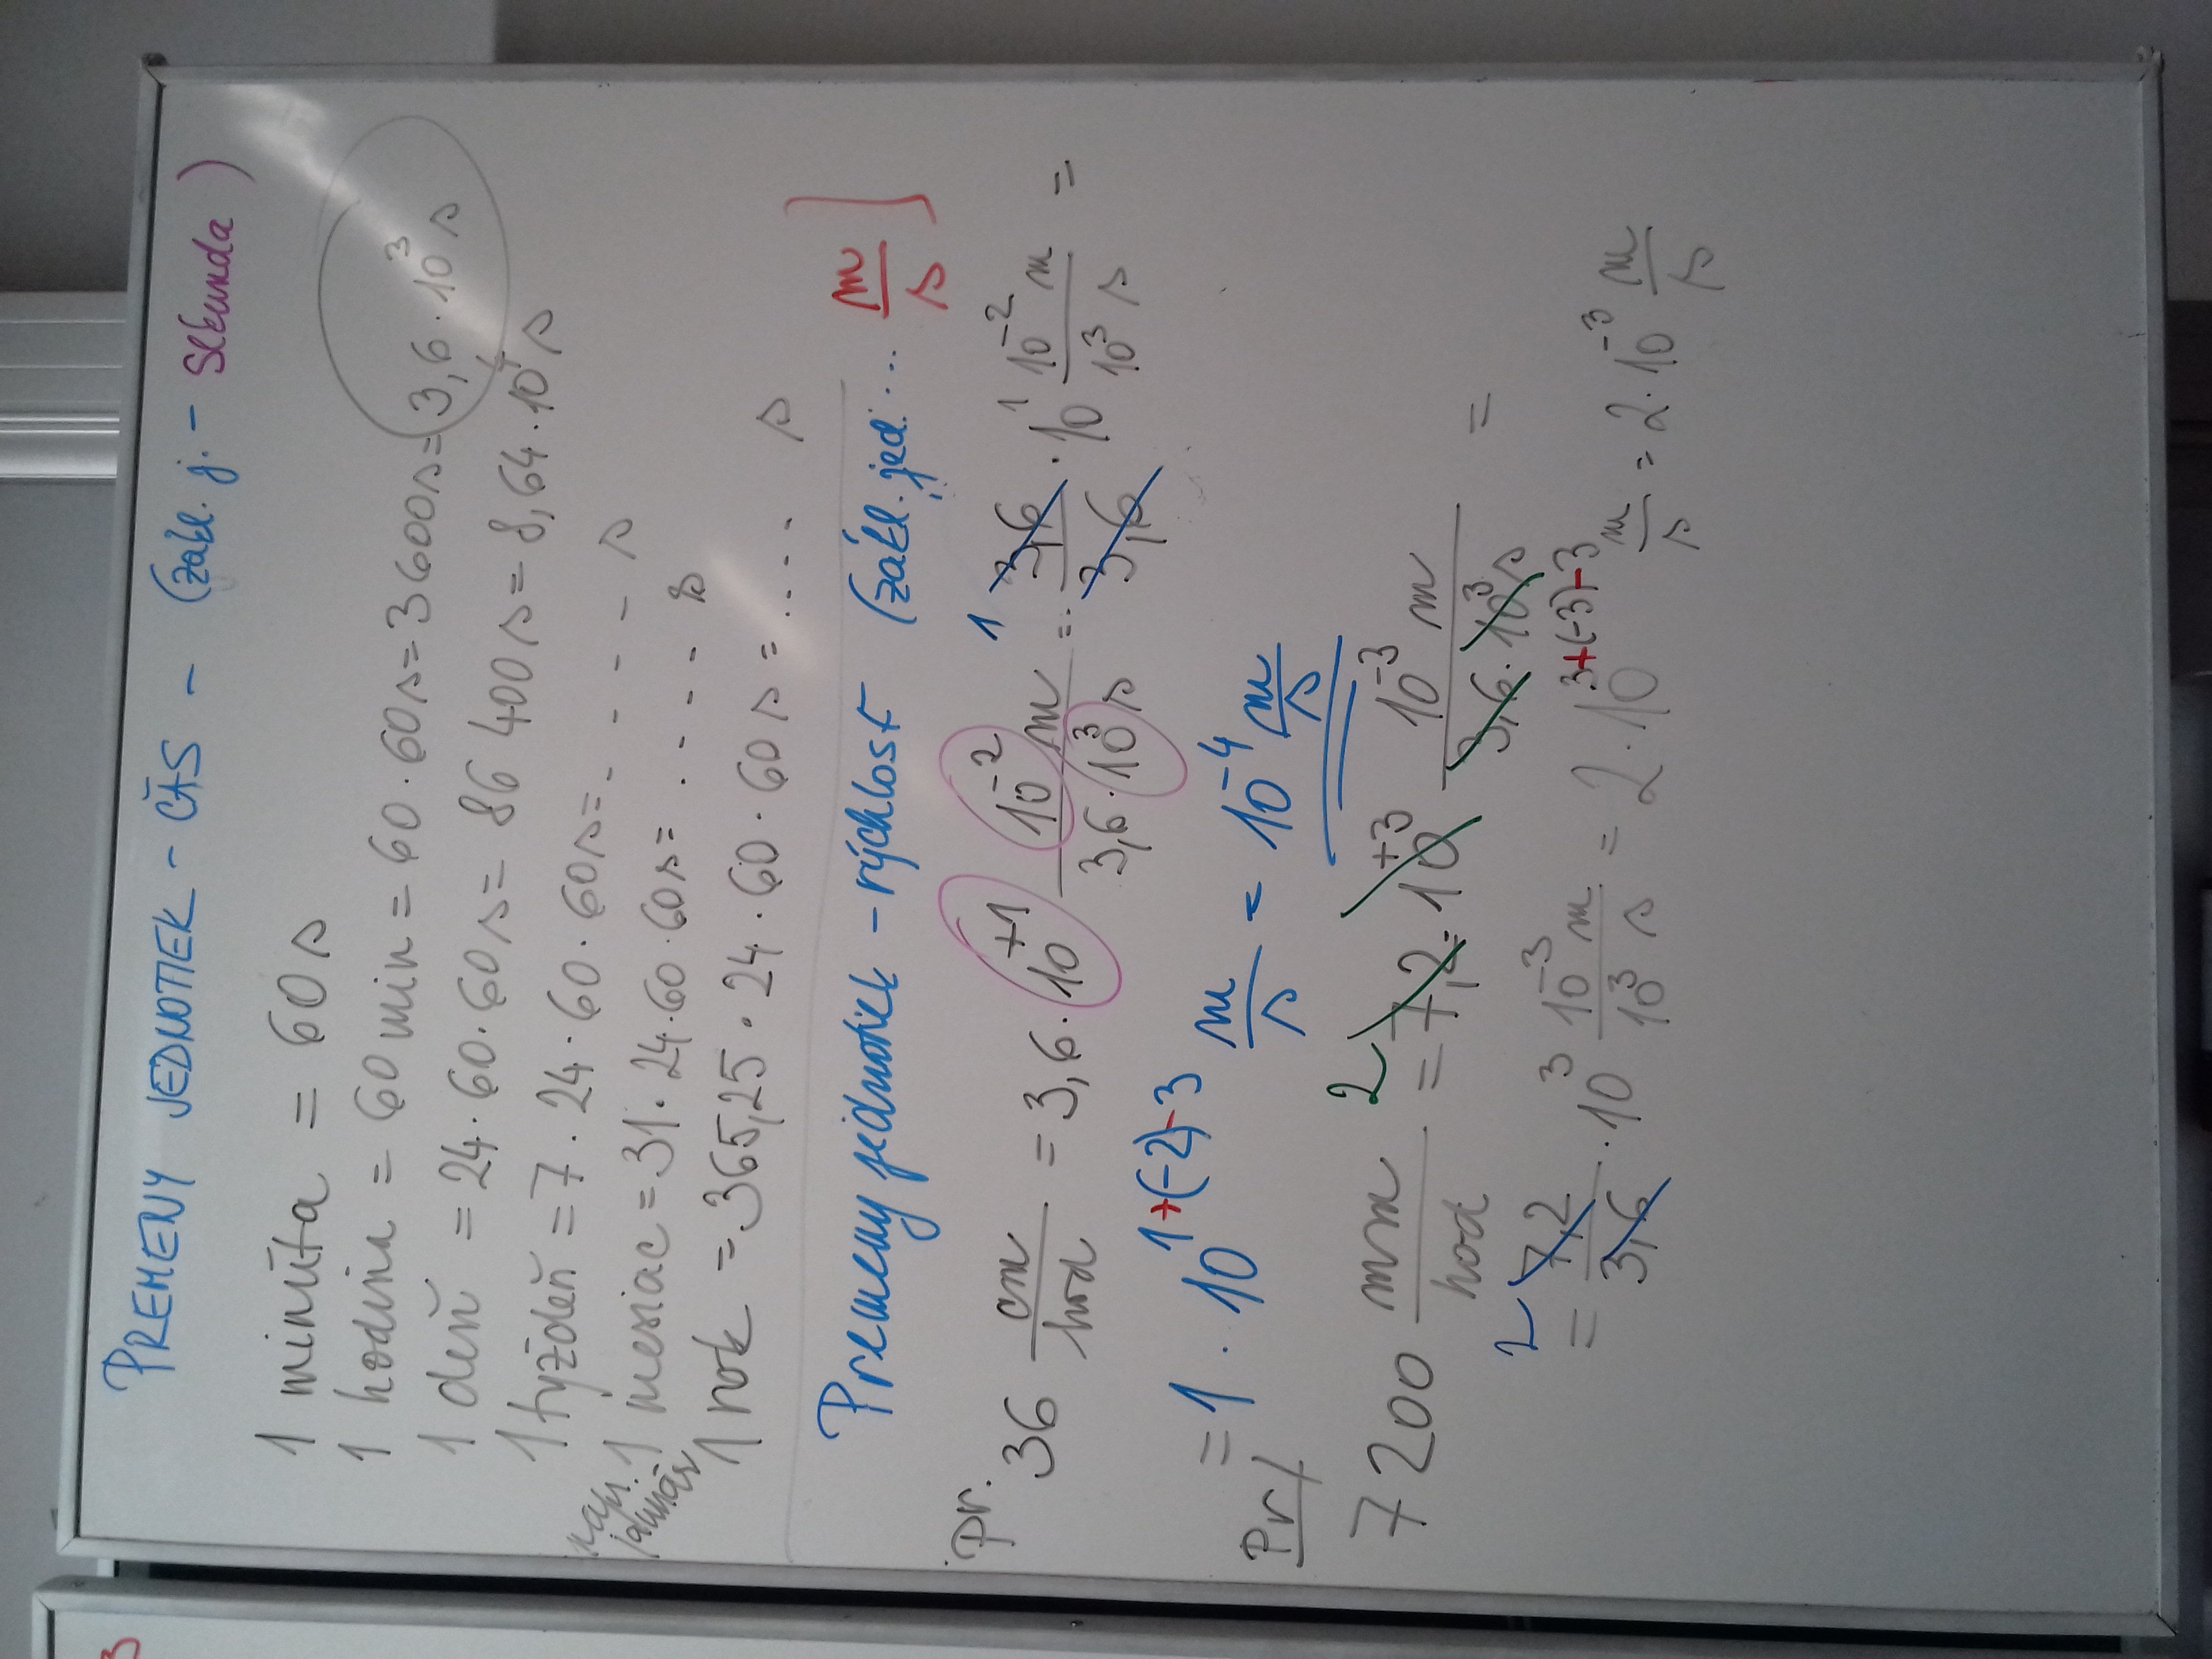 PREMENY JEDNOTIEK - ČAS - (zákl. j. - sekunda)
1 minúta = 60 s
1 hodina = 60 min = 60 · 60 s = 3600 s = 3,6 · 10³ s
1 deň = 24 · 60 · 60 s = 86 400 s = 8,64 · 10⁴ s
1 týždeň = 7 · 24 · 60 · 60 s = - - - - s
napr. január 1 mesiac = 31 · 24 · 60 · 60 s = . - - - s
1 rok = 365,25 · 24 · 60 · 60 s = .... s
Premeny jednotiek - rýchlosť (zákl. jed. ... m/s)
Pr. 36 cm/hod = 3,6 · 10⁺¹ 10⁻² m / 3,6 · 10³ s = 1 3,6/3,6 · 10¹ 10⁻² m / 10³ s =
= 1 · 10¹⁺⁽⁻²⁾⁻³ m/s = 10⁻⁴ m/s
Pr/
7 200 mm/hod = 2 7,2 · 10⁺³ 10⁻³ m / 3,6 · 10³ s =
= 2 7,2/3,6 · 10³ 10⁻³ m / 10³ s = 2 · 10³⁺⁽⁻³⁾⁻³ m/s = 2 · 10⁻³ m/s
3